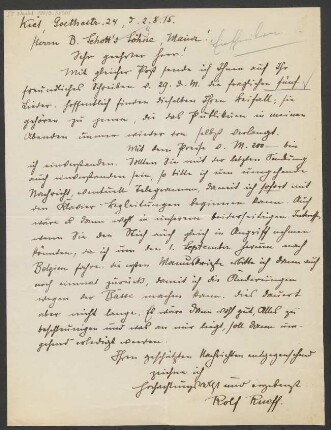 Kiel, Goethestr. 24, d. 2.8.15.
Herrn B. Schott's Söhne, Mainz.
Sehr geehrter Herr!
Mit gleicher Post sende ich Ihnen auf Ihr
freundliches Schreiben v. 29. d. M. die fraglichen fünf
Lieder. Hoffentlich finden dieselben Ihren Beifall; sie
gehören zu jenen, die das Publikum in meinen
Abenden immer wieder von selbst verlangt.
Mit dem Preise v. M. 200.- bin
ich einverstanden. Sollten Sie mit der letzten Sendung
auch einverstanden sein, so bitte ich um umgehende
Nachricht, eventuell Telegramm, damit ich sofort mit
den Klavier-Begleitungen beginnen kann. Auch
wäre es dann wohl in unserem beiderseitigen Interesse,
wenn Sie den Stich auch gleich in Angriff nehmen
könnten, da ich um den 1. September herum nach
Belgien fahre. Die ersten Manuskripte bitte ich dann auch
noch einmal zurück, damit ich die Änderungen
wegen der machen kann. Dies dauert
aber nicht lange. Es wäre dann wohl gut, Alles zu
beschleunigen und was an mir liegt, soll dann
umgehend erledigt werden.
Ihren geschätzten Nachrichten entgegensehend
zeichne ich
hochachtungsvoll und ergebenst
Rolf Rueff.